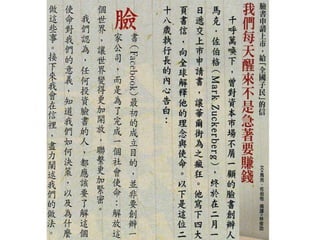 臉書申請上市，給「全國子民」的信
我們每天醒來不是急著要賺錢
千呼萬喚下，曾對資本市場不屑一顧的臉書創辦人
馬克．佐伯格（Mark Zuckerberg），終於在二月一
日遞交上市申請書，讓華爾街為之瘋狂。他寫下四大
頁書信，向全球解釋他的理念與使命。以下是這位二
十八歲執行長的內心告白：
臉書（Facebook）最初的成立目的，並非要創辦一
家公司，而是為了完成一個社會使命：解放這
個世界，讓世界變得更加開放、聯繫更加緊密。
我們認為，任何投資臉書的人，都應該要了解這個
使命對我們的意義，知道我們如何決策，以及為什麼
做這些事。接下來我會在信裡，盡力闡述我們的做法。